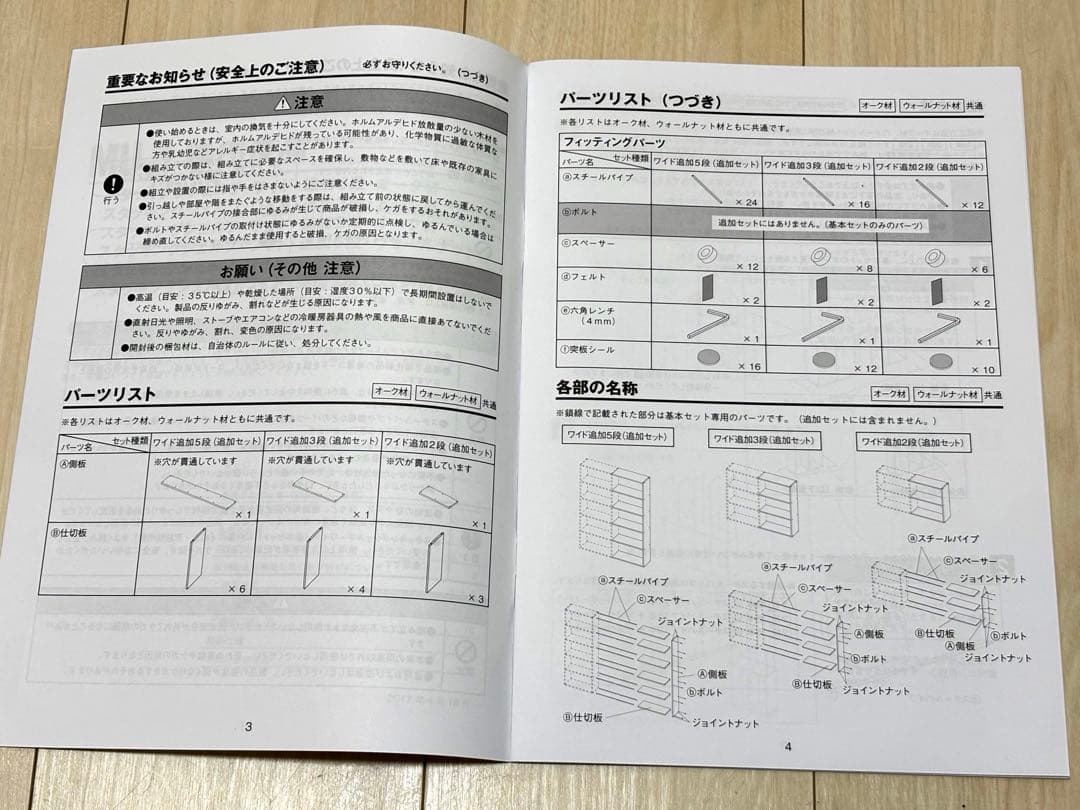 重要なお知らせ(安全上のご注意) 必ずお守りください。(つづき)
注意
行う
●使い始めるときは、室内の換気を十分にしてください。ホルムアルデヒド放散量の少ない木材を
使用しておりますが、ホルムアルデヒドが残っている可能性があり、化学物質に過敏な体質な
方や乳幼児などアレルギー症状を起こすことがあります。
●組み立ての際は、組み立てに必要なスペースを確保し、敷物などを敷いて床や既存の家具に
キズがつかない様に注意してください。
●組立や設置の際には指や手をはさまないようにご注意ください。
●引っ越しや部屋や階をまたぐような移動をする際は、組み立て前の状態に戻してから運んでくだ
さい。スチールパイプの接合部にゆるみが生じて商品が破損し、ケガをするおそれがあります。
●ボルトやスチールパイプの取付け状態にゆるみがないか定期的に点検し、ゆるんでいる場合は
締め直してください。ゆるんだまま使用すると破損、ケガの原因となります。
お願い(その他 注意)
●高温(目安:35℃以上)や乾燥した場所(目安:湿度30%以下)で長期間設置はしないで
ください。製品の反りゆがみ、割れなどが生じる原因になります。
●直射日光や照明、ストーブやエアコンなどの冷暖房器具の熱や風を商品に直接あてないでくだ
さい。反りやゆがみ、割れ、変色の原因になります。
●開封後の梱包材は、自治体のルールに従い、処分してください。
パーツリスト オーク材 ウォールナット材 共通
※各リストはオーク材、ウォールナット材ともに共通です。
パーツ名 セット種類 ワイド追加5段(追加セット) ワイド追加3段(追加セット) ワイド追加2段(追加セット)
Ⓐ側板 ※穴が貫通しています ※穴が貫通しています ※穴が貫通しています
×1 ×1 ×1
Ⓑ仕切板
×6 ×4 ×3
3
パーツリスト(つづき) オーク材 ウォールナット材 共通
※各リストはオーク材、ウォールナット材ともに共通です。
フィッティングパーツ
パーツ名 セット種類 ワイド追加5段(追加セット) ワイド追加3段(追加セット) ワイド追加2段(追加セット)
ⓐスチールパイプ
×24 ×16 ×12
ⓑボルト 追加セットにはありません。(基本セットのみのパーツ)
ⓒスペーサー
×12 ×8 ×6
ⓓフェルト
×2 ×2 ×2
ⓔ六角レンチ
(4mm)
×1 ×1 ×1
ⓕ突板シール
×16 ×12 ×10
各部の名称 オーク材 ウォールナット材 共通
※鎖線で記載された部分は基本セット専用のパーツです。(追加セットには含まれません。)
ワイド追加5段(追加セット) ワイド追加3段(追加セット) ワイド追加2段(追加セット)
ⓐスチールパイプ
ⓒスペーサー
ジョイントナット
Ⓐ側板
ⓑボルト
Ⓑ仕切板
ジョイントナット
ⓐスチールパイプ
ⓒスペーサー
ジョイントナット
Ⓐ側板
ⓑボルト
Ⓑ仕切板
ジョイントナット
ⓐスチールパイプ
ⓒスペーサー
ジョイントナット
Ⓑ仕切板
ⓑボルト
Ⓐ側板
ジョイントナット
4